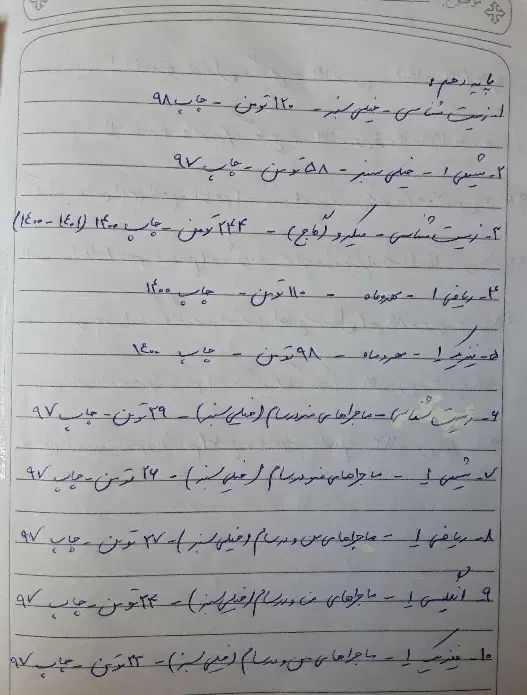 پایه دهم:
۱- زیست شناسی - خیلی سبز - ۱۲۰ تومن - چاپ ۹۸
۲- شیمی ۱ - خیلی سبز - ۵۸ تومن - چاپ ۹۷
۳- زیست شناسی - میکرو (گاج) - ۲۴۴ تومن - چاپ ۱۴۰۰ (۱۴۰۱ - ۱۴۰۰)
۴- ریاضی ۱ - مهروماه - ۱۱۰ تومن - چاپ ۱۴۰۰
۵- فیزیک ۱ - مهروماه - ۹۸ تومن - چاپ ۱۴۰۰
۶- زیست شناسی - ماجراهای من و درسام (خیلی سبز) - ۳۹ تومن - چاپ ۹۷
۷- شیمی ۱ - ماجراهای من و درسام (خیلی سبز) - ۲۶ تومن - چاپ ۹۷
۸- ریاضی ۱ - ماجراهای من و درسام (خیلی سبز) - ۲۷ تومن - چاپ ۹۷
۹- انگلیسی ۱ - ماجراهای من و درسام (خیلی سبز) - ۲۴ تومن - چاپ ۹۷
۱۰- فیزیک ۱ - ماجراهای من و درسام (خیلی سبز) - ۲۳ تومن - چاپ ۹۷